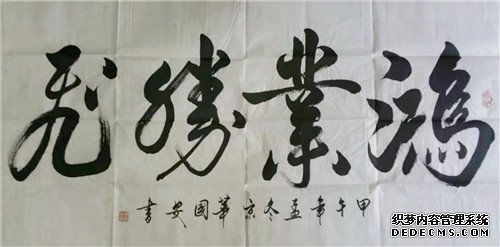 鴻業勝飛
甲午年孟冬京華國安書
织梦内容管理系统
DEDECMS.COM